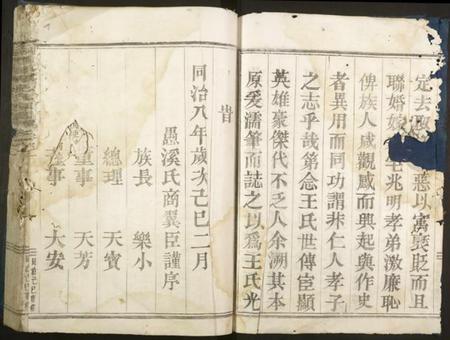 定去 惡以寓褒貶而且
聯婚嫁 宅兆明孝弟激廉恥
俾族人咸觀感而興起與作史
者異用而同功謂非仁人孝子
之志乎哉第念王氏世傳宦顯
英雄豪傑代不乏人余溯其本
原爰濡筆而誌之以爲王氏光
昔
同治八年歲次己巳二月
愚溪氏商翼臣謹序
族長 樂小
總理 天寳
董事 天芳
董事 大安